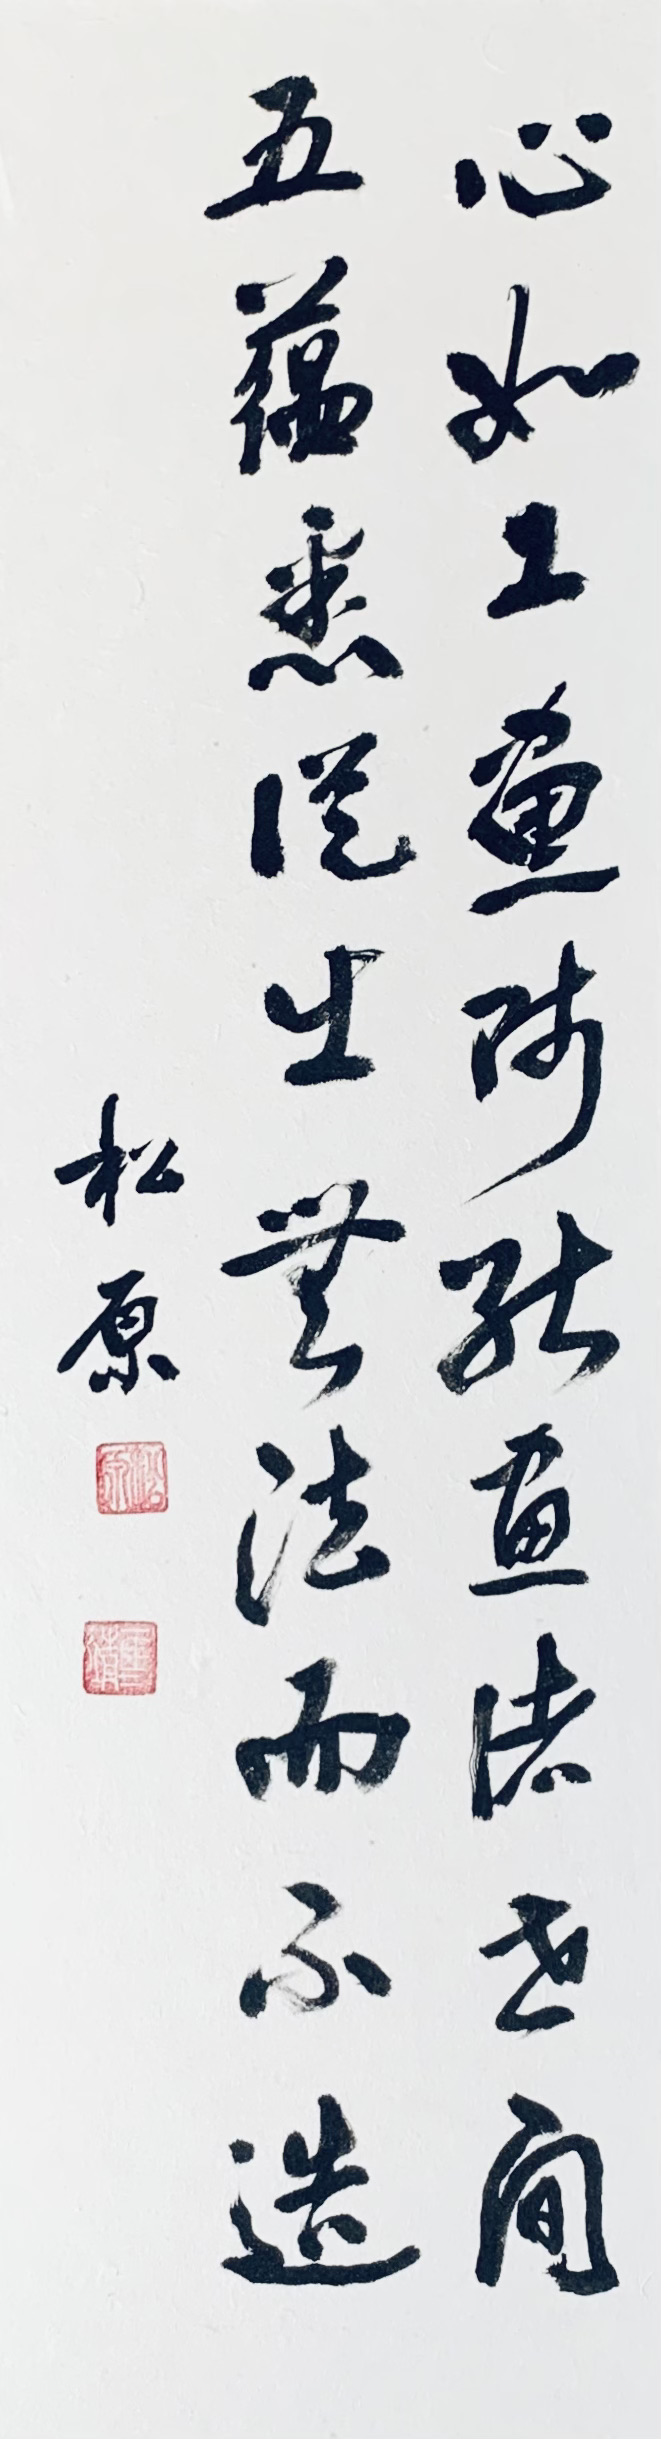 心如工畫師能畫諸世間
五蘊悉從生無法而不造
松原